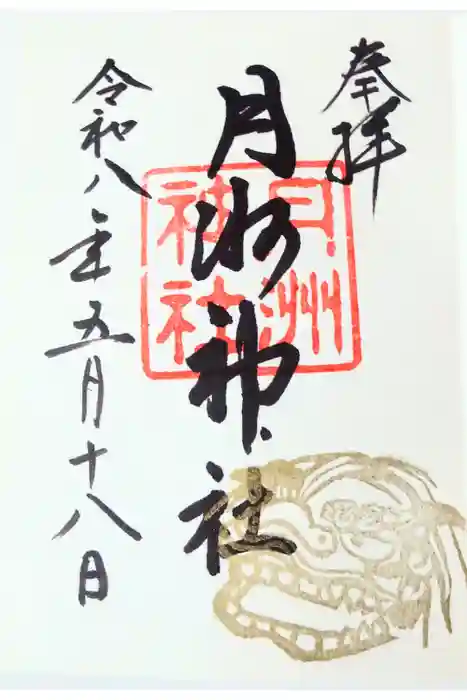 奉拝
月洲神社
月洲神社
令和八年五月十八日